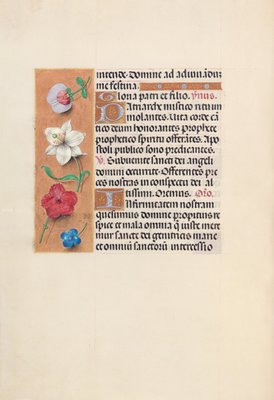 intende· Domine ad adiuvandum
me festina·
Gloria patri et filio. ymus.
Patriarche mistico ritum
imolantes· Vita corde ca
tico deum honorantes prophete
prophetico spiritu offerātes· Apo
stoli publico sono predicantes·
V. Subuenite sancti dei angeli
domini occurrite· Offerentes pre
ces nostras in conspectu dei al
tissimi· Oremus· Oro.
Infirmitatem nostram
quesumus domine propitius re
spice et mala omnia q̄ iuste mere
mur sancte dei genitricis marie
et omniū sanctorū intercessio